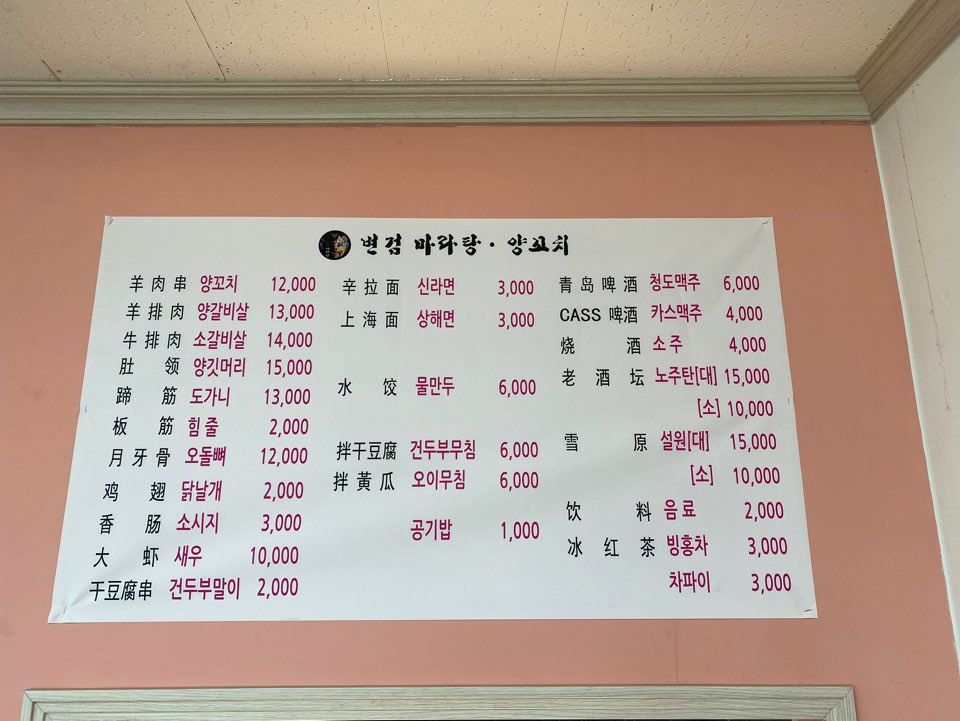 변검 마라탕 · 양꼬치
羊肉串 양꼬치 12,000
羊排肉 양갈비살 13,000
牛排肉 소갈비살 14,000
肚领 양깃머리 15,000
蹄筋 도가니 13,000
板筋 힘줄 2,000
月牙骨 오돌뼈 12,000
鸡翅 닭날개 2,000
香肠 소시지 3,000
大虾 새우 10,000
干豆腐串 건두부말이 2,000
辛拉面 신라면 3,000
上海面 상해면 3,000
水饺 물만두 6,000
拌干豆腐 건두부무침 6,000
拌黄瓜 오이무침 6,000
공기밥 1,000
青岛啤酒 청도맥주 6,000
CASS 啤酒 카스맥주 4,000
烧酒 소주 4,000
老酒坛 노주탄[대] 15,000
[소] 10,000
雪原 설원[대] 15,000
[소] 10,000
饮料 음료 2,000
冰红茶 빙홍차 3,000
차파이 3,000